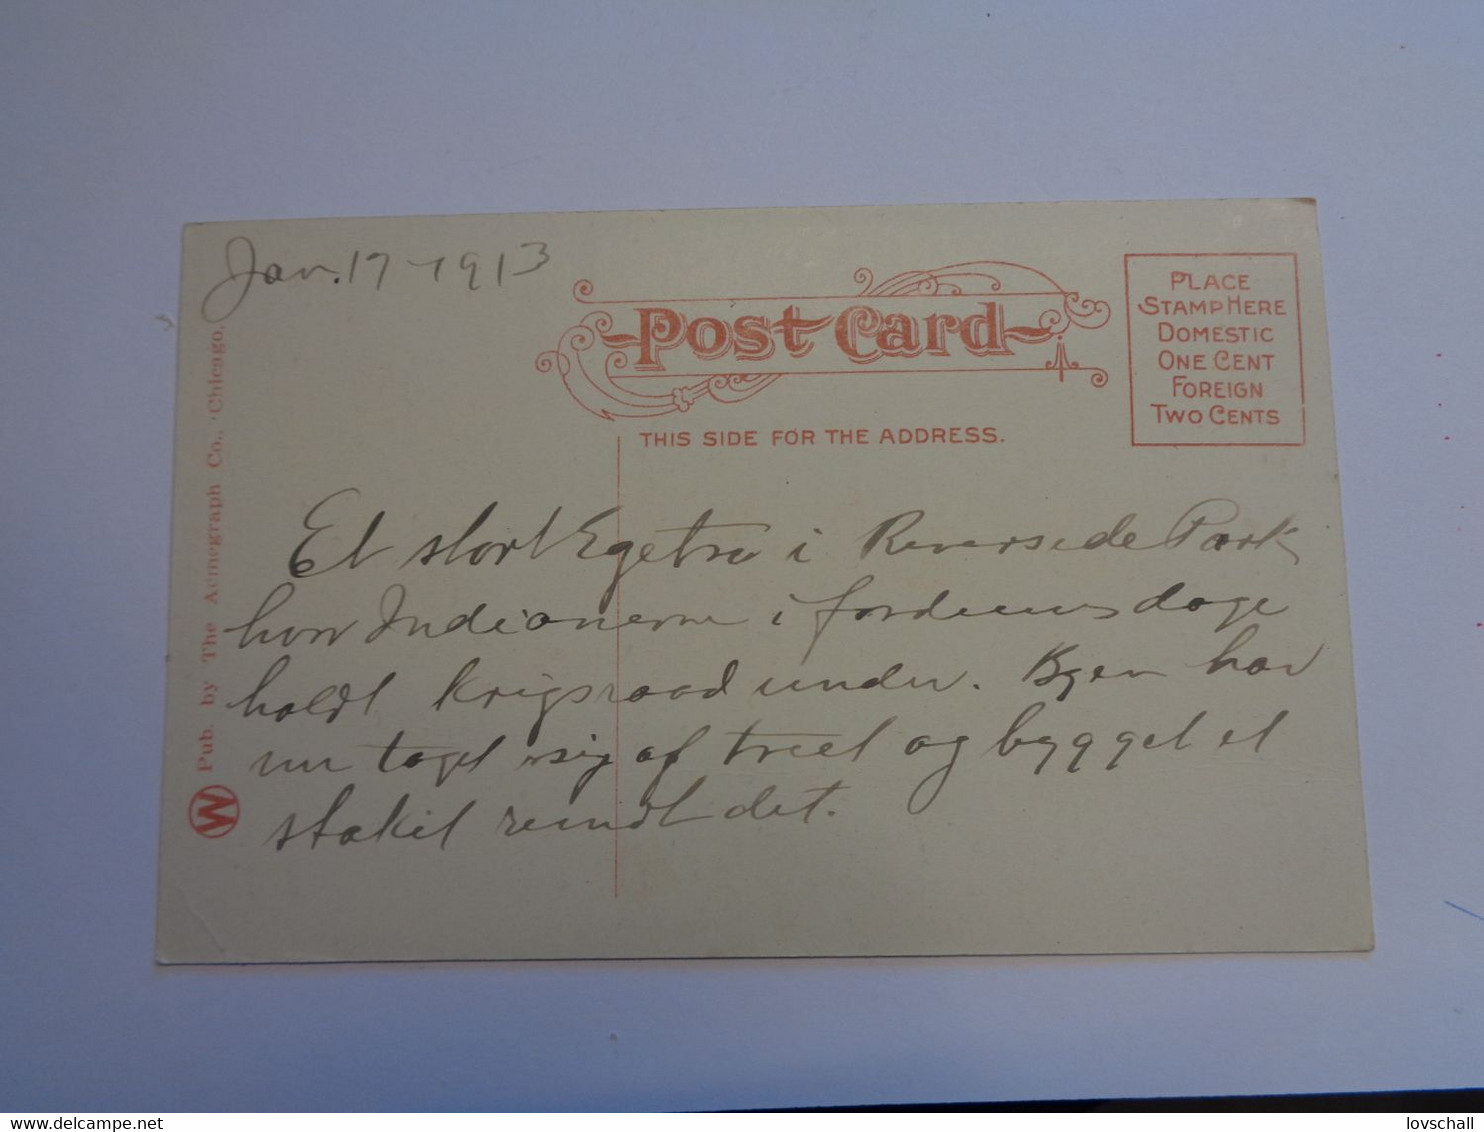 Jan. 17 - 1913
Post Card
THIS SIDE FOR THE ADDRESS.
PLACE
STAMP HERE
DOMESTIC
ONE CENT
FOREIGN
TWO CENTS
W Pub. by The Acmegraph Co., Chicago.
Et stort Egetræ i Riverside Park
hvor Indianerne i fordums dage
holdt krigsraad under. Byen har
nu taget sig af træet og bygget et
stakit rundt det.
delcampe.net
lovschall